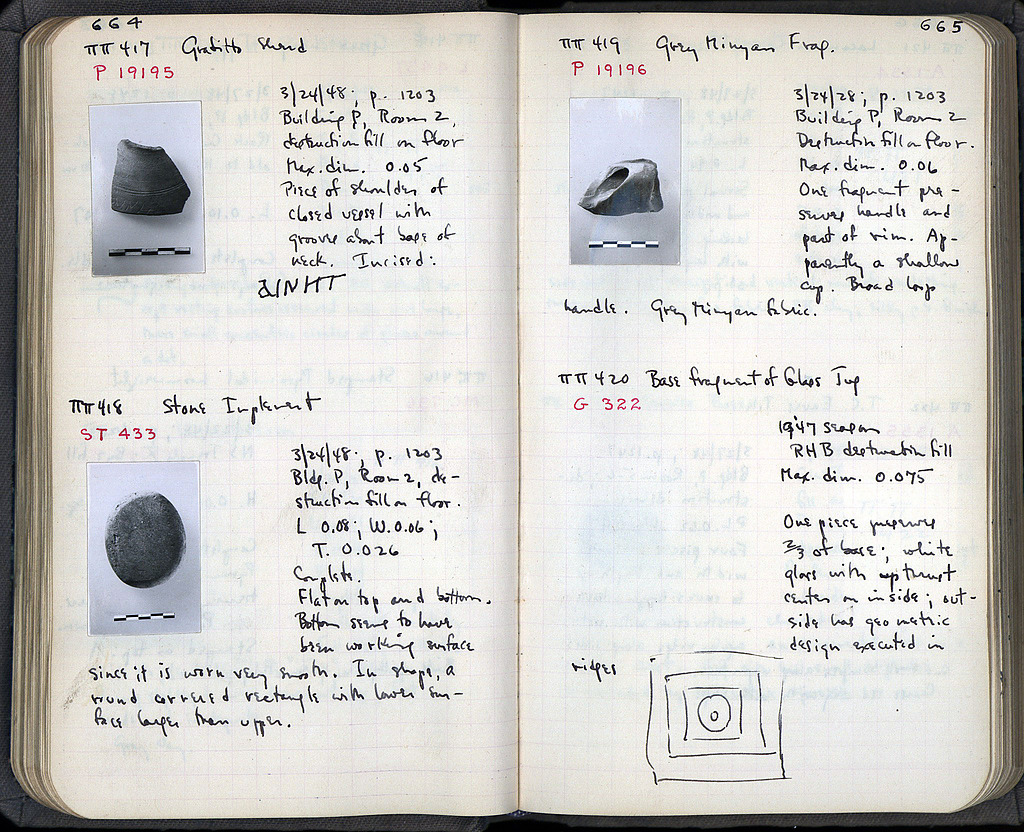 664
ΠΠ 417 Grafitto Sherd
P 19195
3/24/48; p. 1203
Building P, Room 2,
destruction fill on floor
Max. dim. 0.05
Piece of shoulder of
closed vessel with
groove about base of
neck. Incised:
ΠΠ 418 Stone Implement
ST 433
3/24/48; p. 1203
Bldg. P, Room 2, de-
struction fill on floor.
L 0.08; W. 0.06;
T. 0.026
Complete.
Flat on top and bottom.
Bottom seems to have
been working surface
since it is worn very smooth. In shape, a
round cornered rectangle with lower sur-
face larger than upper.
665
ΠΠ 419 Grey Minyan Frag.
P 19196
3/24/28; p. 1203
Building P, Room 2
Destruction fill on floor.
Max. dim. 0.06
One fragment pre-
serves handle and
part of rim. Ap-
parently a shallow
cup. Broad loop
handle. Grey Minyan fabric.
ΠΠ 420 Base fragment of Glass Jug
G 322
1947 season
RHB destruction fill
Max. dim. 0.075
One piece preserves
2/3 of base; white
glass with upthrust
center on inside; out-
side has geometric
design executed in
ridges